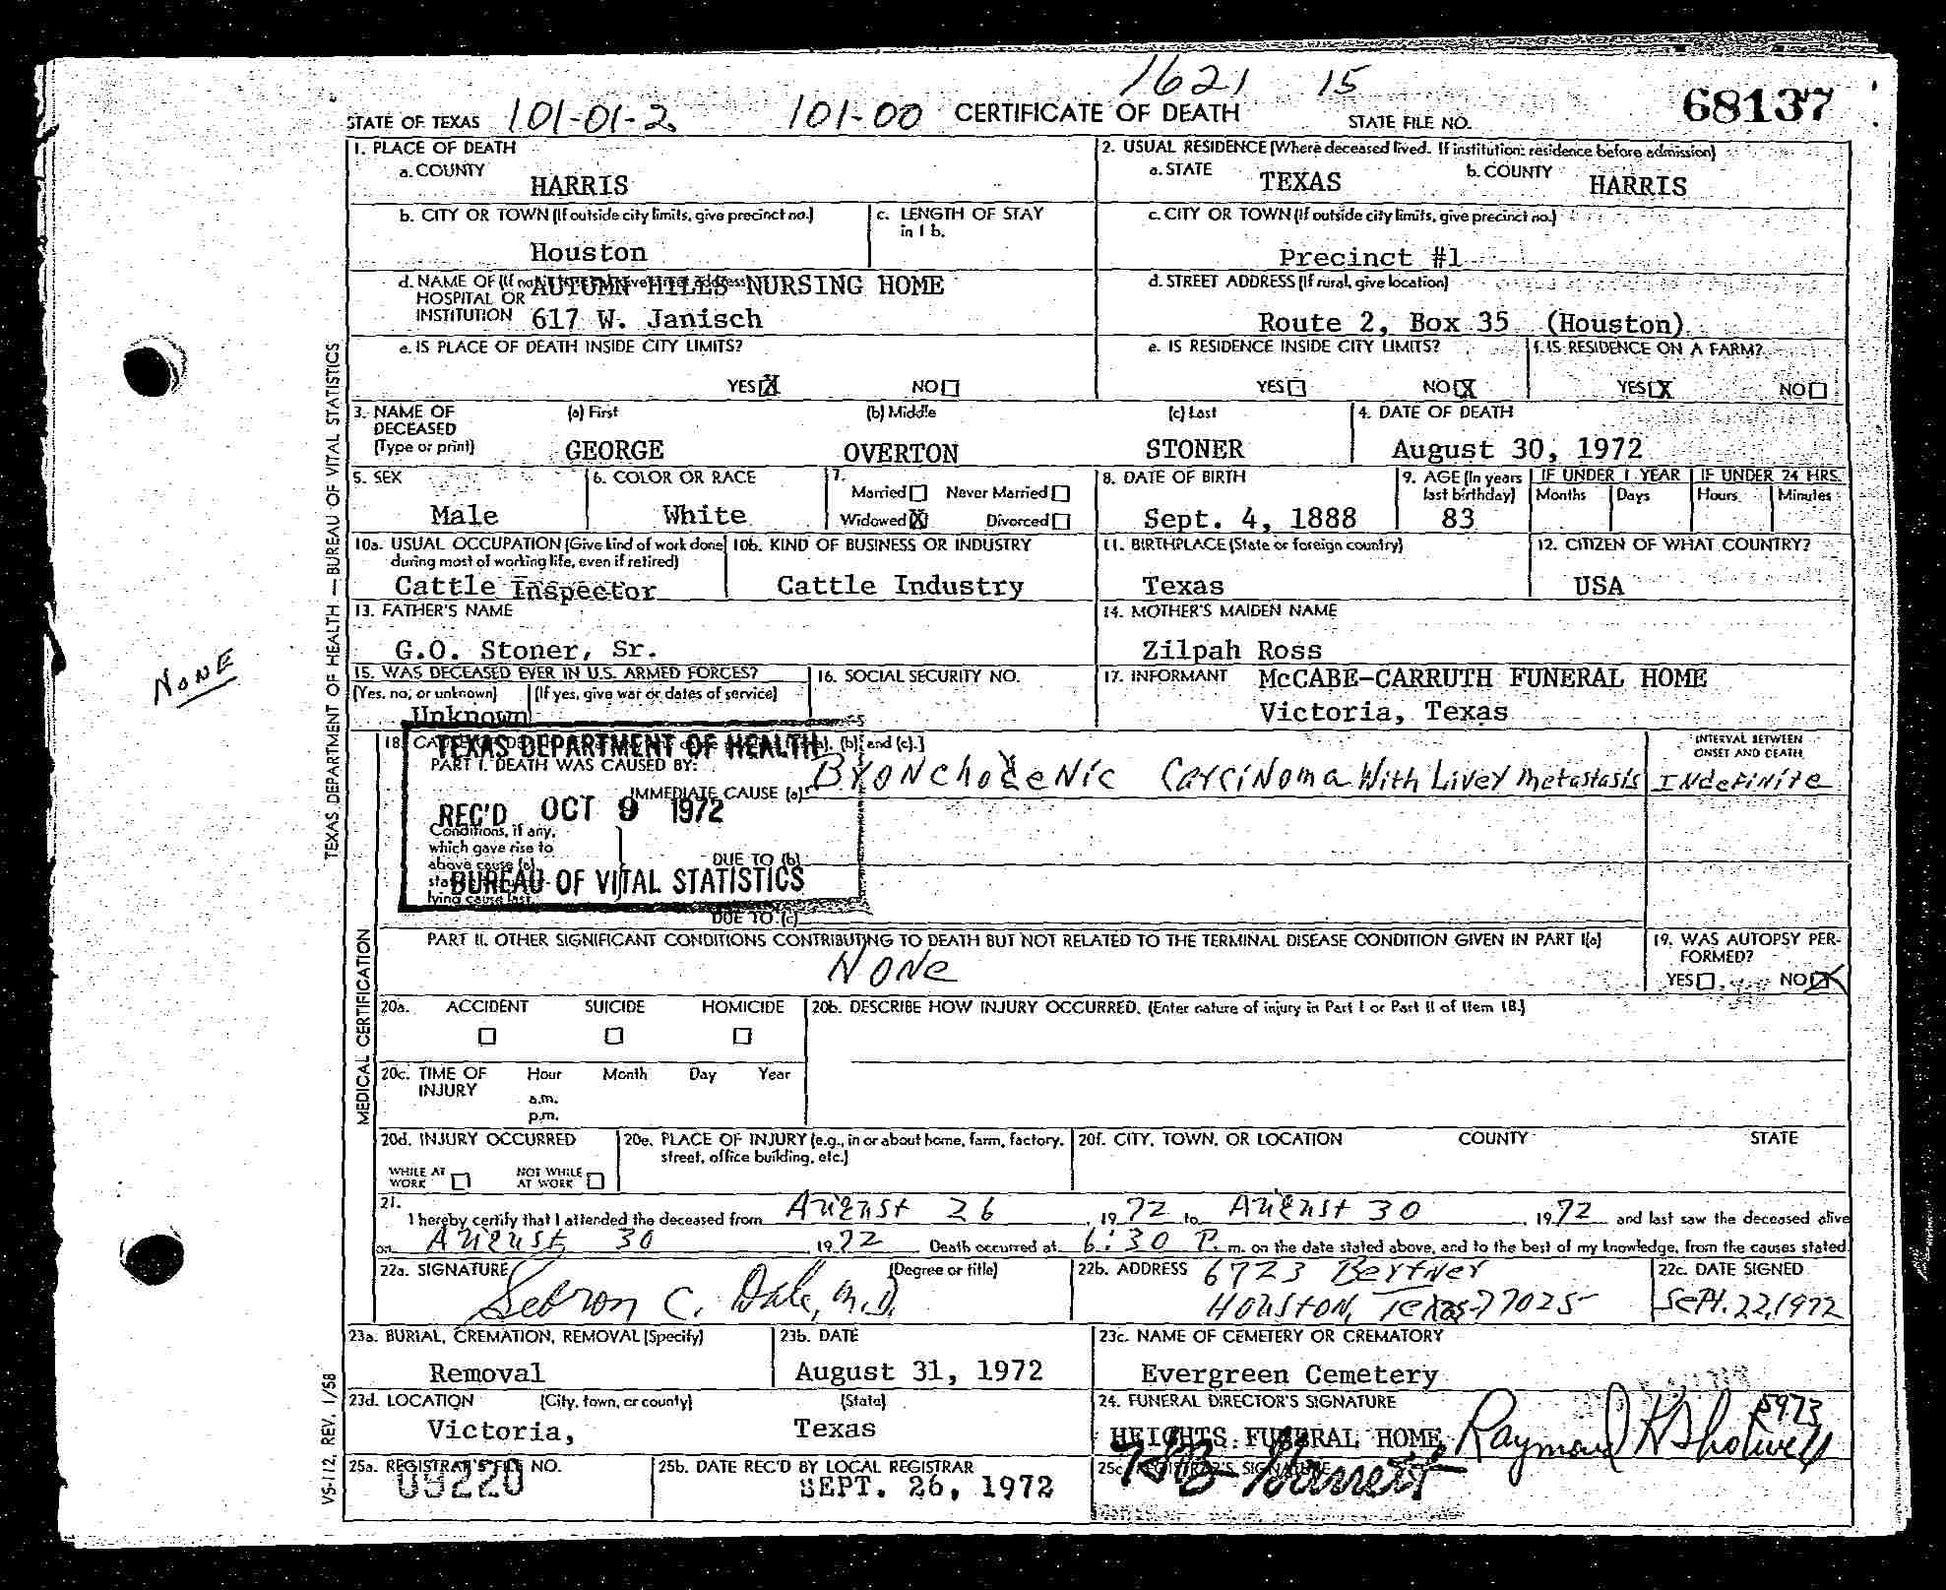 1621 15
STATE OF TEXAS 101-01-2 101-00 CERTIFICATE OF DEATH STATE FILE NO. 68137
1. PLACE OF DEATH
a. COUNTY HARRIS
2. USUAL RESIDENCE (Where deceased lived. If institution: residence before admission)
a. STATE TEXAS b. COUNTY HARRIS
b. CITY OR TOWN (If outside city limits, give precinct no.) Houston
c. LENGTH OF STAY in 1 b.
c. CITY OR TOWN (If outside city limits, give precinct no.) Precinct #1
d. NAME OF HOSPITAL OR INSTITUTION AUTUMN HILLS NURSING HOME
617 W. Janisch
d. STREET ADDRESS (If rural, give location)
Route 2, Box 35 (Houston)
e. IS PLACE OF DEATH INSIDE CITY LIMITS?
YES X NO
e. IS RESIDENCE INSIDE CITY LIMITS?
YES NO X
f. IS RESIDENCE ON A FARM?
YES X NO
3. NAME OF DECEASED (Type or print)
(a) First GEORGE
(b) Middle OVERTON
(c) Last STONER
4. DATE OF DEATH
August 30, 1972
5. SEX
Male
6. COLOR OR RACE
White
7. Married Never Married
Widowed X Divorced
8. DATE OF BIRTH
Sept. 4, 1888
9. AGE (In years last birthday)
83
IF UNDER 1 YEAR Months Days
IF UNDER 24 HRS. Hours Minutes
10a. USUAL OCCUPATION (Give kind of work done during most of working life, even if retired)
Cattle Inspector
10b. KIND OF BUSINESS OR INDUSTRY
Cattle Industry
11. BIRTHPLACE (State or foreign country)
Texas
12. CITIZEN OF WHAT COUNTRY?
USA
13. FATHER'S NAME
G.O. Stoner, Sr.
14. MOTHER'S MAIDEN NAME
Zilpah Ross
15. WAS DECEASED EVER IN U.S. ARMED FORCES?
(Yes, no, or unknown) (If yes, give war or dates of service)
Unknown
16. SOCIAL SECURITY NO.
17. INFORMANT McCABE-CARRUTH FUNERAL HOME
Victoria, Texas
NONE
TEXAS DEPARTMENT OF HEALTH — BUREAU OF VITAL STATISTICS
TEXAS DEPARTMENT OF HEALTH
REC'D OCT 9 1972
BUREAU OF VITAL STATISTICS
18. (b) and (c).]
PART I. DEATH WAS CAUSED BY:
IMMEDIATE CAUSE (a) Bronchogenic Carcinoma With Liver Metastasis
INTERVAL BETWEEN ONSET AND DEATH
Indefinite
Conditions, if any, which gave rise to above cause (a) lying cause last.
DUE TO (b)
DUE TO (c)
PART II. OTHER SIGNIFICANT CONDITIONS CONTRIBUTING TO DEATH BUT NOT RELATED TO THE TERMINAL DISEASE CONDITION GIVEN IN PART I(a)
None
19. WAS AUTOPSY PERFORMED?
YES NO X
MEDICAL CERTIFICATION
20a. ACCIDENT SUICIDE HOMICIDE
20b. DESCRIBE HOW INJURY OCCURRED. (Enter nature of injury in Part I or Part II of Item 18.)
20c. TIME OF INJURY Hour Month Day Year
a.m.
p.m.
20d. INJURY OCCURRED
WHILE AT WORK NOT WHILE AT WORK
20e. PLACE OF INJURY (e.g., in or about home, farm, factory, street, office building, etc.)
20f. CITY, TOWN, OR LOCATION COUNTY STATE
21.
I hereby certify that I attended the deceased from August 26, 1972 to August 30, 1972 and last saw the deceased alive
on August 30 1972 Death occurred at 6:30 P. m. on the date stated above, and to the best of my knowledge, from the causes stated
22a. SIGNATURE (Degree or title)
Sebron C. Dale, M.D.
22b. ADDRESS 6723 Bertner
Houston, Texas 77025
22c. DATE SIGNED
Sept. 22, 1972
23a. BURIAL, CREMATION, REMOVAL (Specify)
Removal
23b. DATE
August 31, 1972
23c. NAME OF CEMETERY OR CREMATORY
Evergreen Cemetery
23d. LOCATION (City, town, or county) (State)
Victoria, Texas
24. FUNERAL DIRECTOR'S SIGNATURE 5973
HEIGHTS FUNERAL HOME Raymond K Shotwell
25a. REGISTRAR'S FILE NO.
09220
25b. DATE REC'D BY LOCAL REGISTRAR
SEPT. 26, 1972
25c. REGISTRAR'S SIGNATURE
VS-112, REV. 1/58